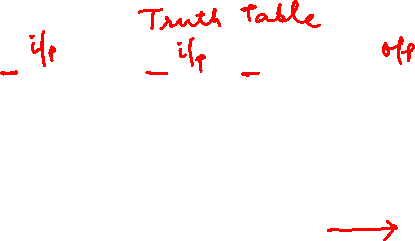 Truth Table
i/p i/p o/p